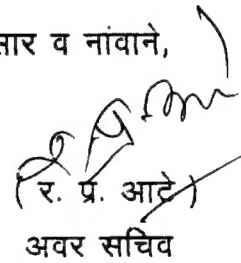 सार व नांवाने,
(र. प्र. आटे)
अवर सचिव